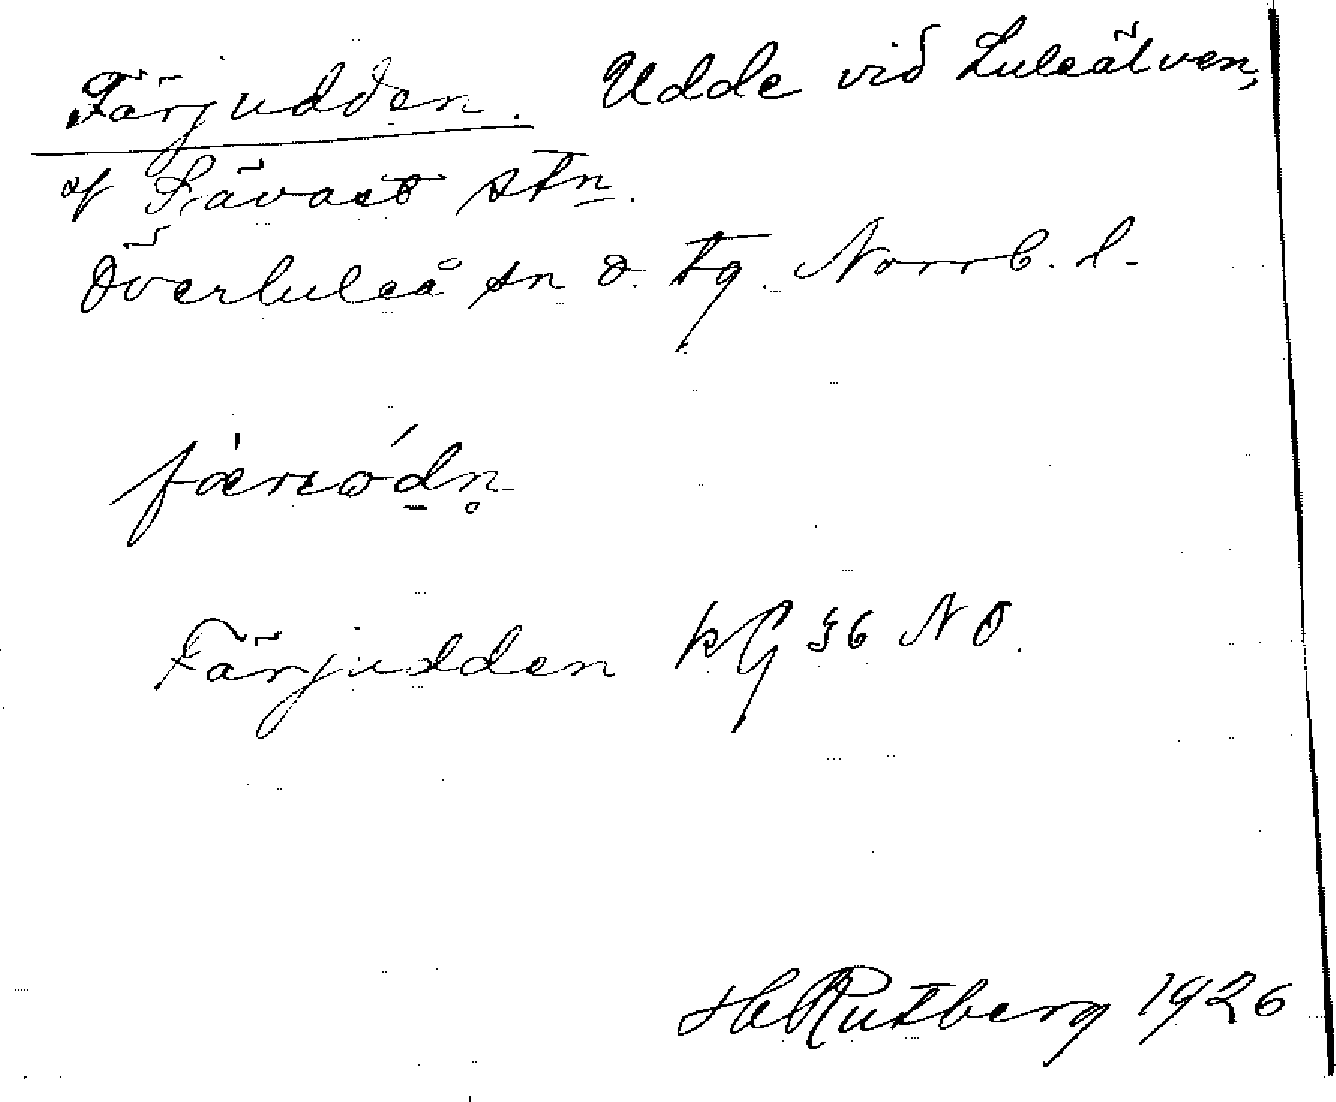 Färjudden. Udde vid Luleälven,
af Sävast stn.
Överluleå sn o. tg. Norrb. l.
Färjudden kG 56 NO.
H Rutberg 1926